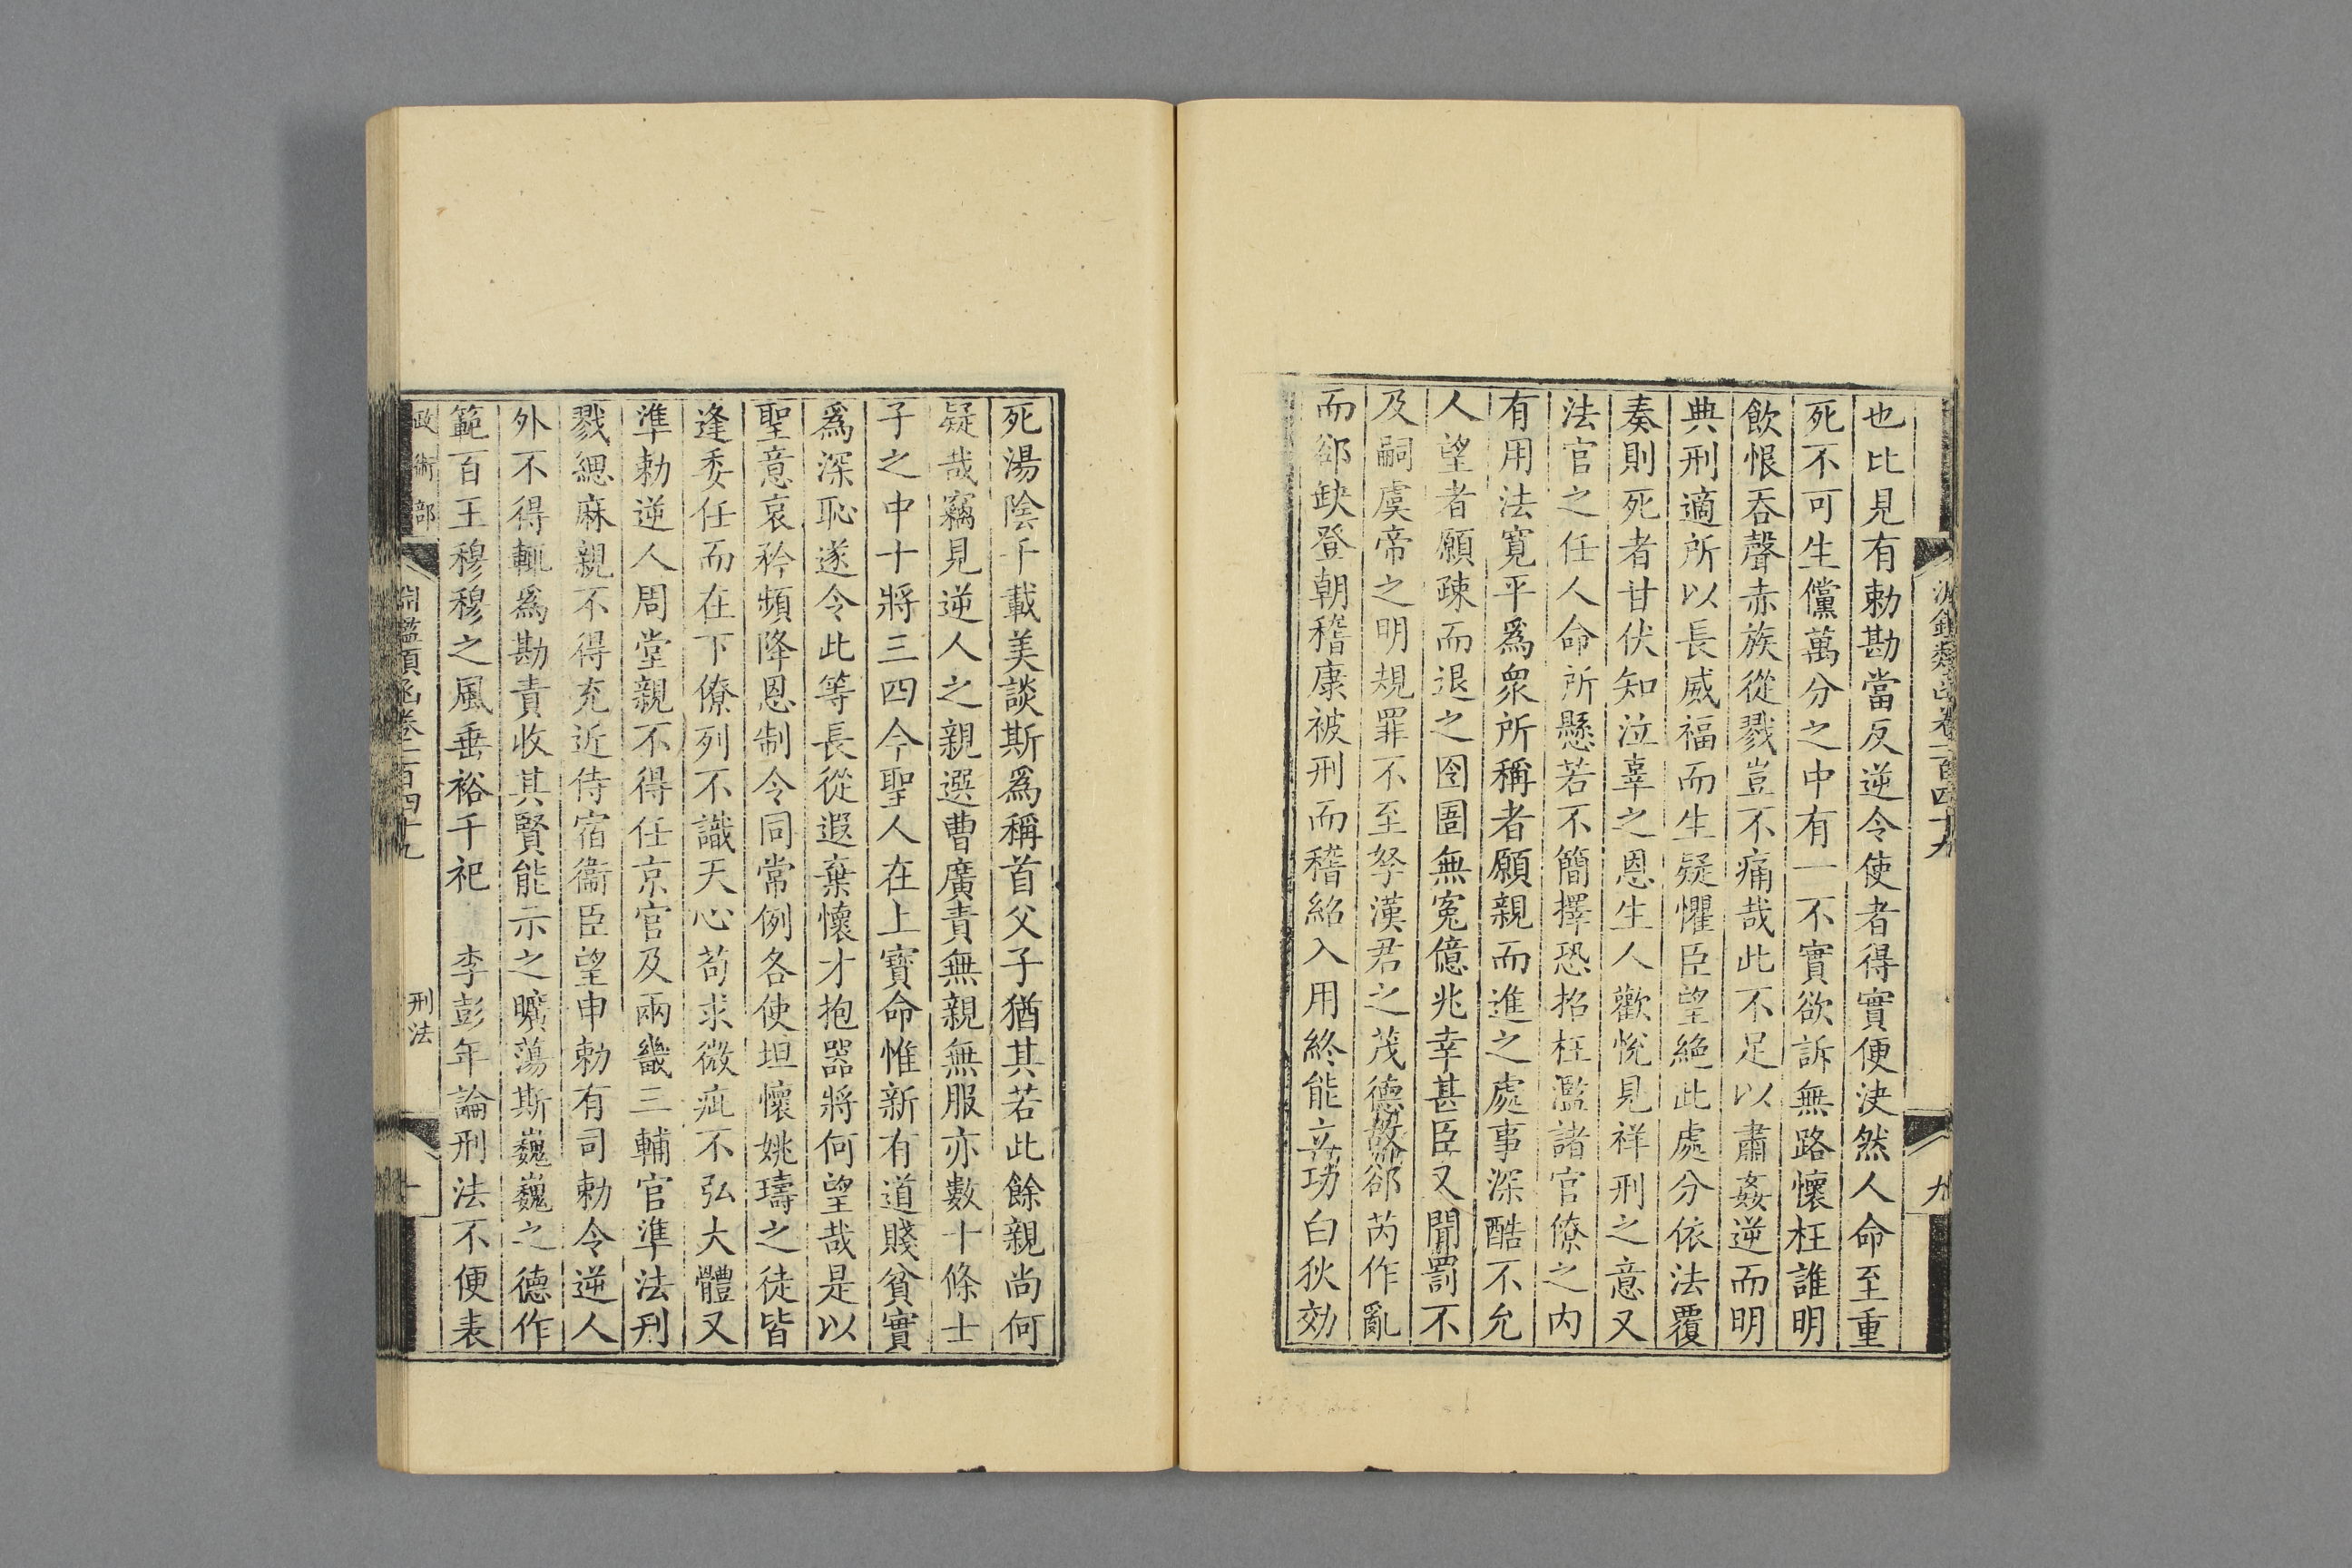 淵鑑類函卷一百四十九
九
也比見有勅勘當反逆令使者得實便決然人命至重
死不可生儻萬分之中有一不實欲訴無路懷枉誰明
飲恨吞聲赤族從戮豈不痛哉此不足以肅姦逆而明
典刑適所以長威福而生疑懼臣望絶此處分依法覆
奏則死者甘伏知泣辜之恩生人歡悅見祥刑之意又
法官之任人命所懸若不簡擇恐招枉濫諸官僚之内
有用法寬平爲衆所稱者願親而進之處事深酷不允
人望者願疎而退之囹圄無寃億兆幸甚臣又聞罰不
及嗣虞帝之明規罪不至孥漢君之茂德故郤芮作亂
而郤缺登朝嵇康被刑而嵇紹入用終能立功白狄効
死湯陰千載美談斯爲稱首父子猶其若此餘親尚何
疑哉竊見逆人之親選曹廣責無親無服亦數十條士
子之中十將三四今聖人在上寳命惟新有道賤貧實
爲深恥遂令此等長從遐棄懷才抱器將何望哉是以
聖意哀矜頻降恩制令同常例各使坦懷姚璹之徒皆
逢委任而在下僚列不識天心苟求微疵不弘大體又
準勅逆人周堂親不得任京官及兩畿三輔官準法刑
戮緦麻親不得充近侍宿衞臣望申勅有司勅令逆人
外不得輒爲勘責收其賢能示之曠蕩斯巍巍之德作
範百王穆穆之風垂裕千祀　李彭年論刑法不便表
政術部
淵鑑類函卷一百四十九
刑法